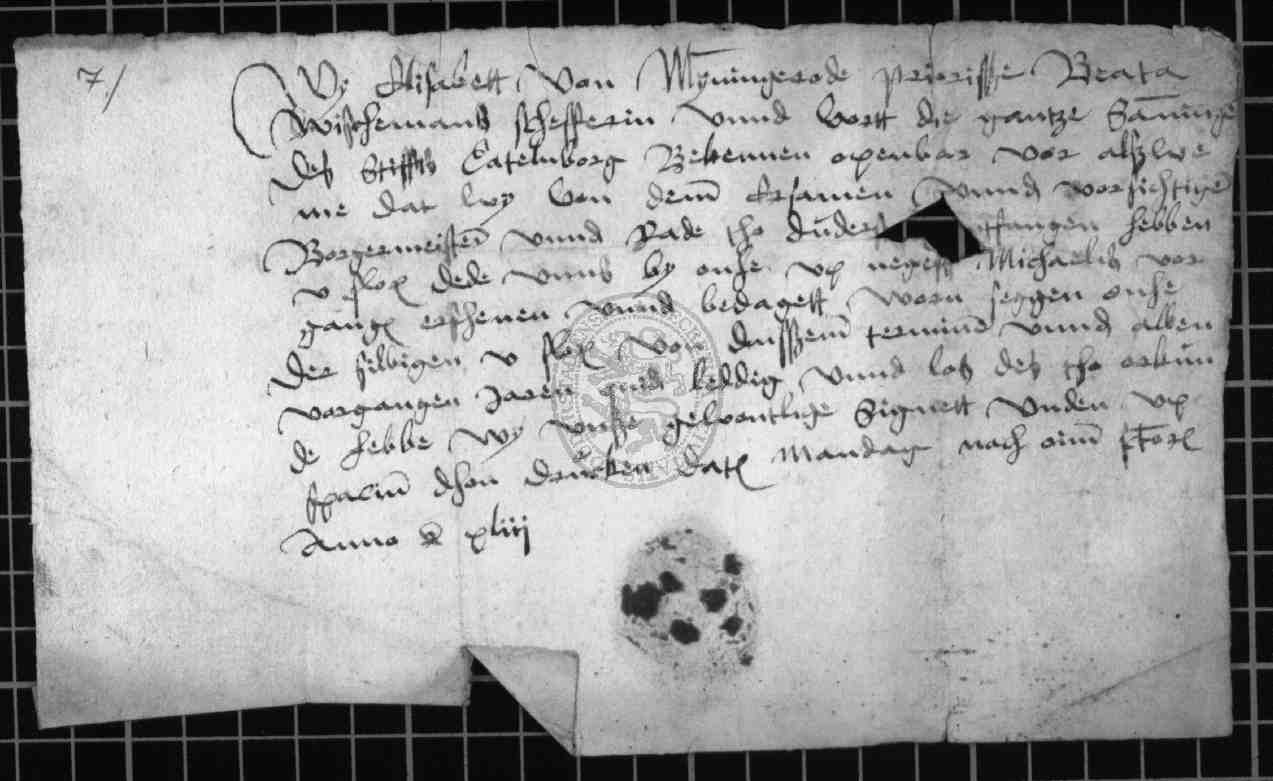 7/
Wy Elisabett von Mÿningerode priorisse Beata
Wischemans schefferin vnnd vortt die gantze Sam̄ninge
des Stiffts Catelnborg Bekennen openbar vor alszwe
me dat wy von dem̄ Ersamen vnnd vorsichtigen
Borgermeister vnnd Rade tho Duders ntfangen hebben
v flor dede vnns by onse vp negest Michaelis vor
gangen erschenen vnnd bedagett worn seggen onse
der silbigen v flor von dusszem̄ termine vnnd allen
vorgangen Jaren quid leddig vnnd loß des tho orkun
de hebbe wy vnsze gewontlige Signett vnden vp
spacium dhon drucken Dat Mandag nach om̄ sctor
Anno xliij